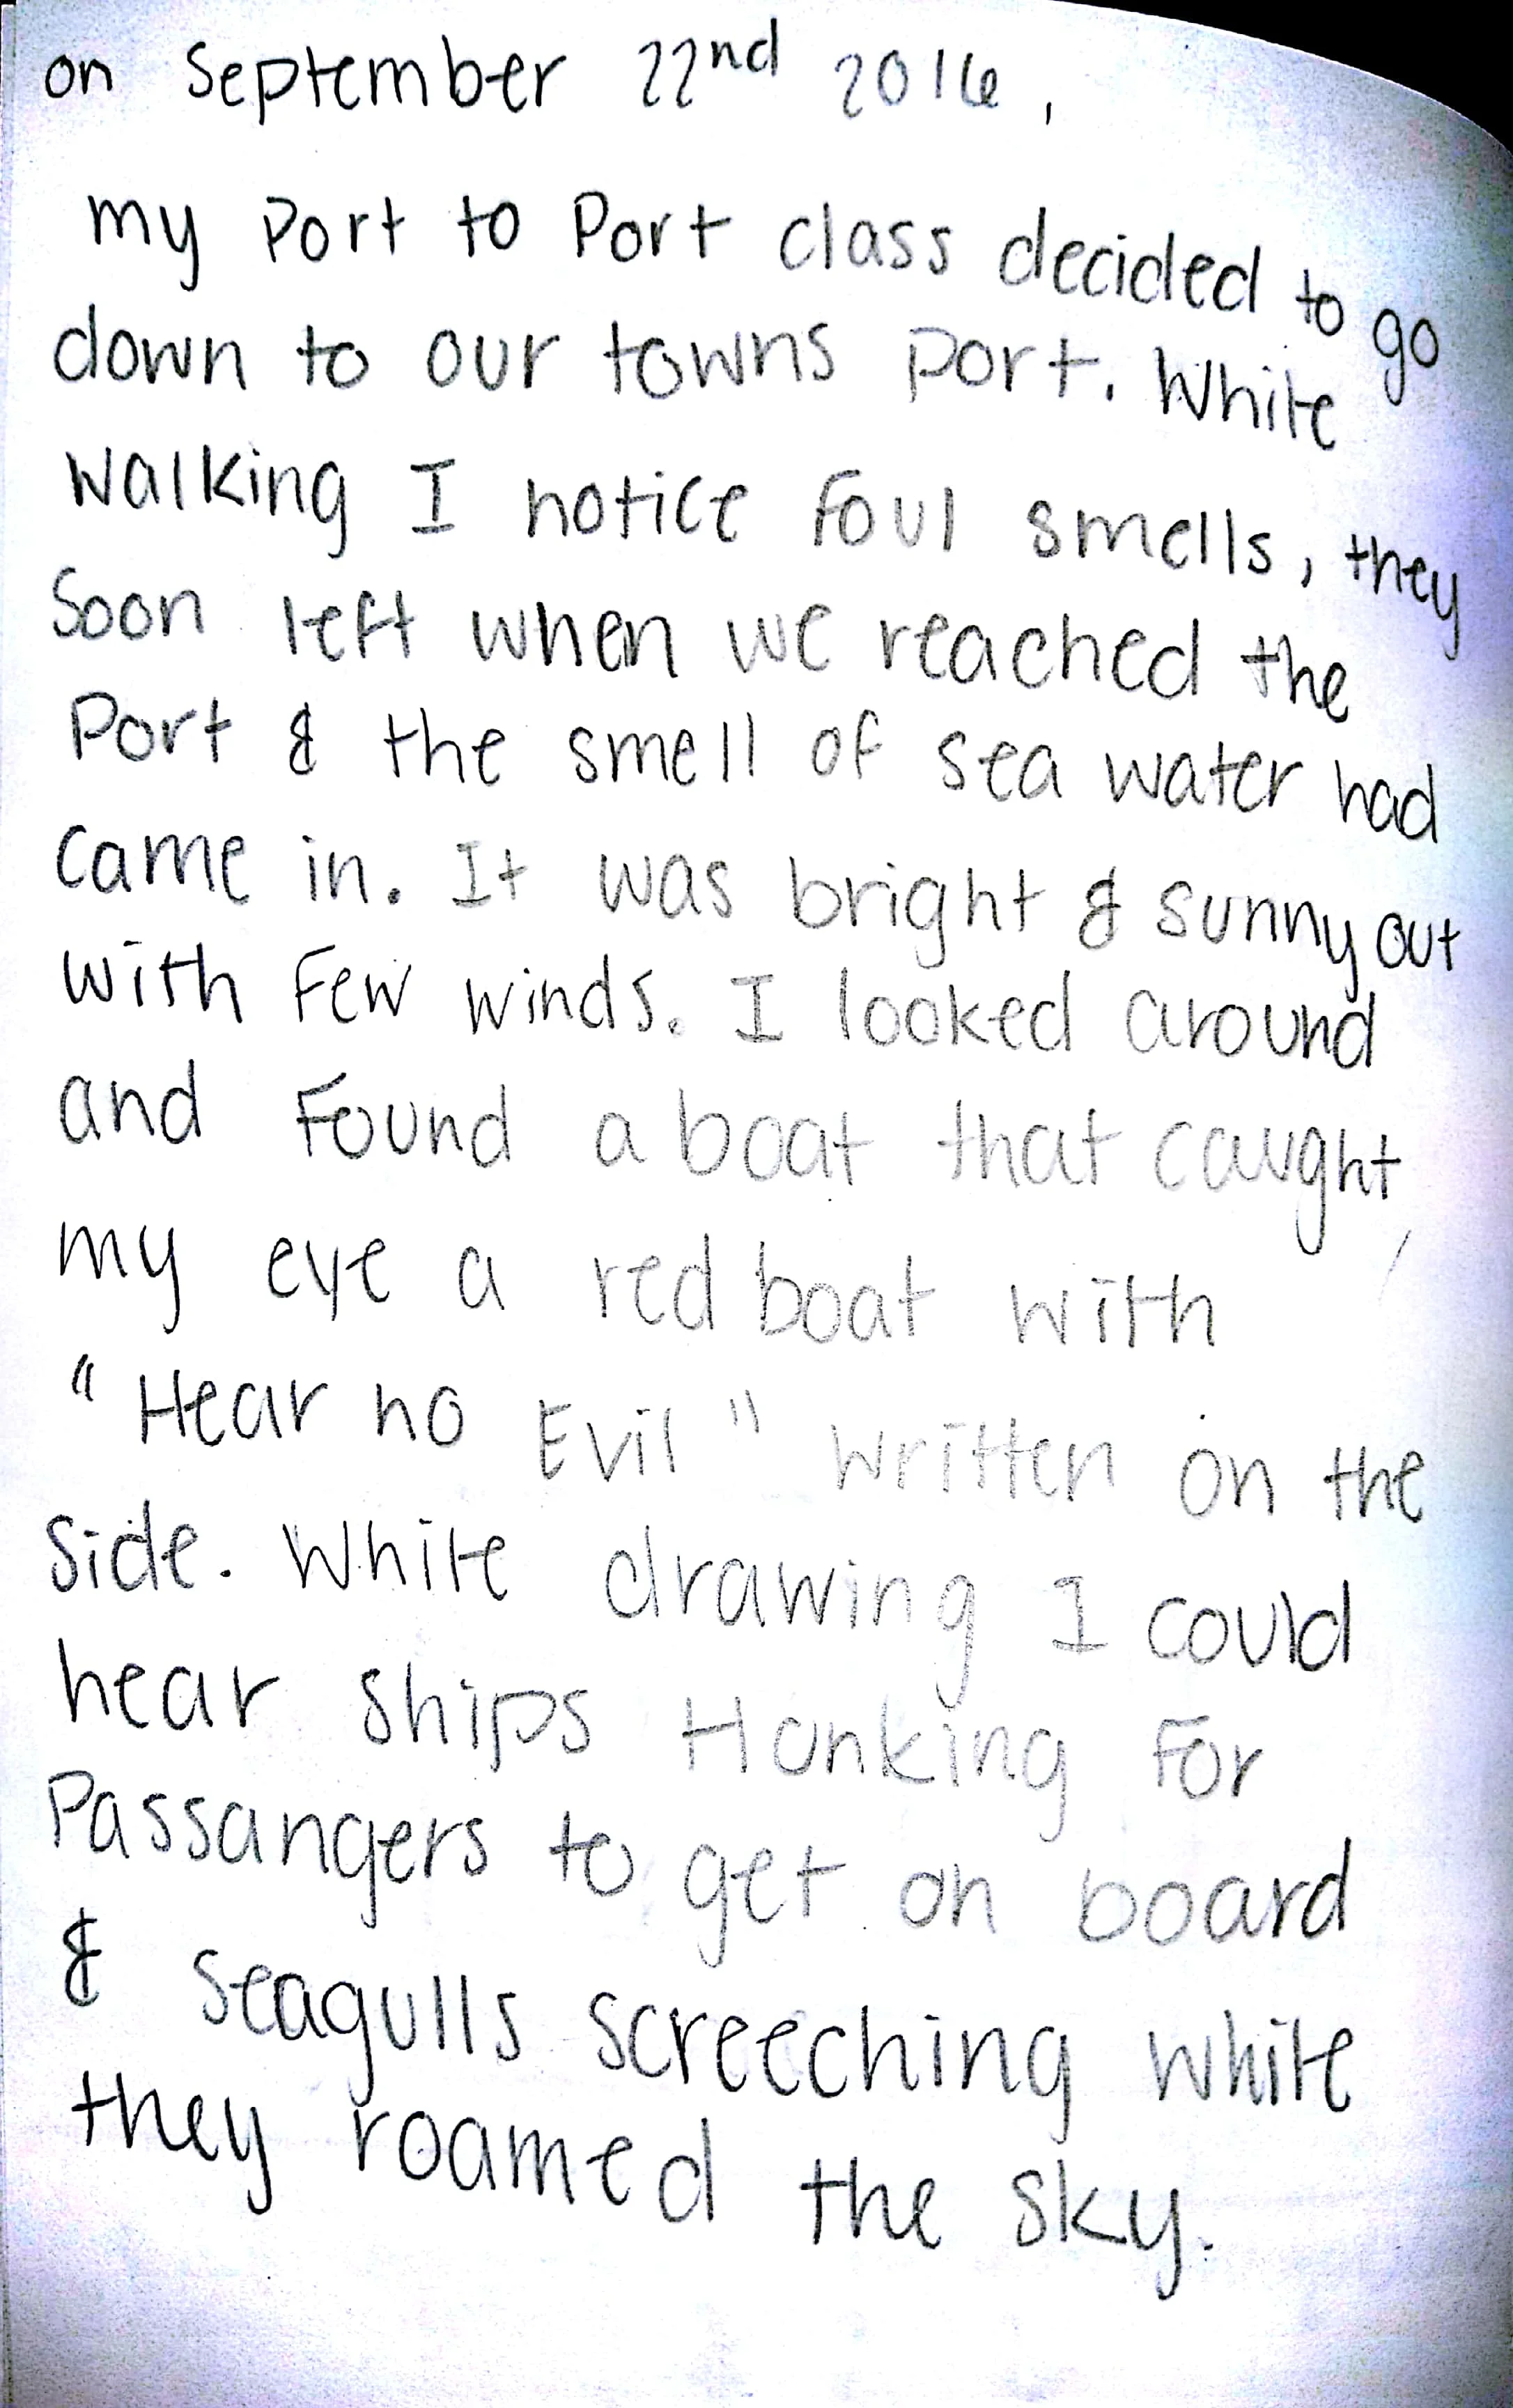 on September 22nd 2016,
my Port to Port class decided to go
down to our towns port. While
walking I notice foul smells, they
soon left when we reached the
Port & the smell of sea water had
came in. It was bright & sunny out
with Few winds. I looked around
and Found a boat that caught,
my eye a red boat with
"Hear no Evil" written on the
side. While drawing I could
hear ships Honking For
Passangers to get on board
& seagulls screeching while
they roamed the sky.